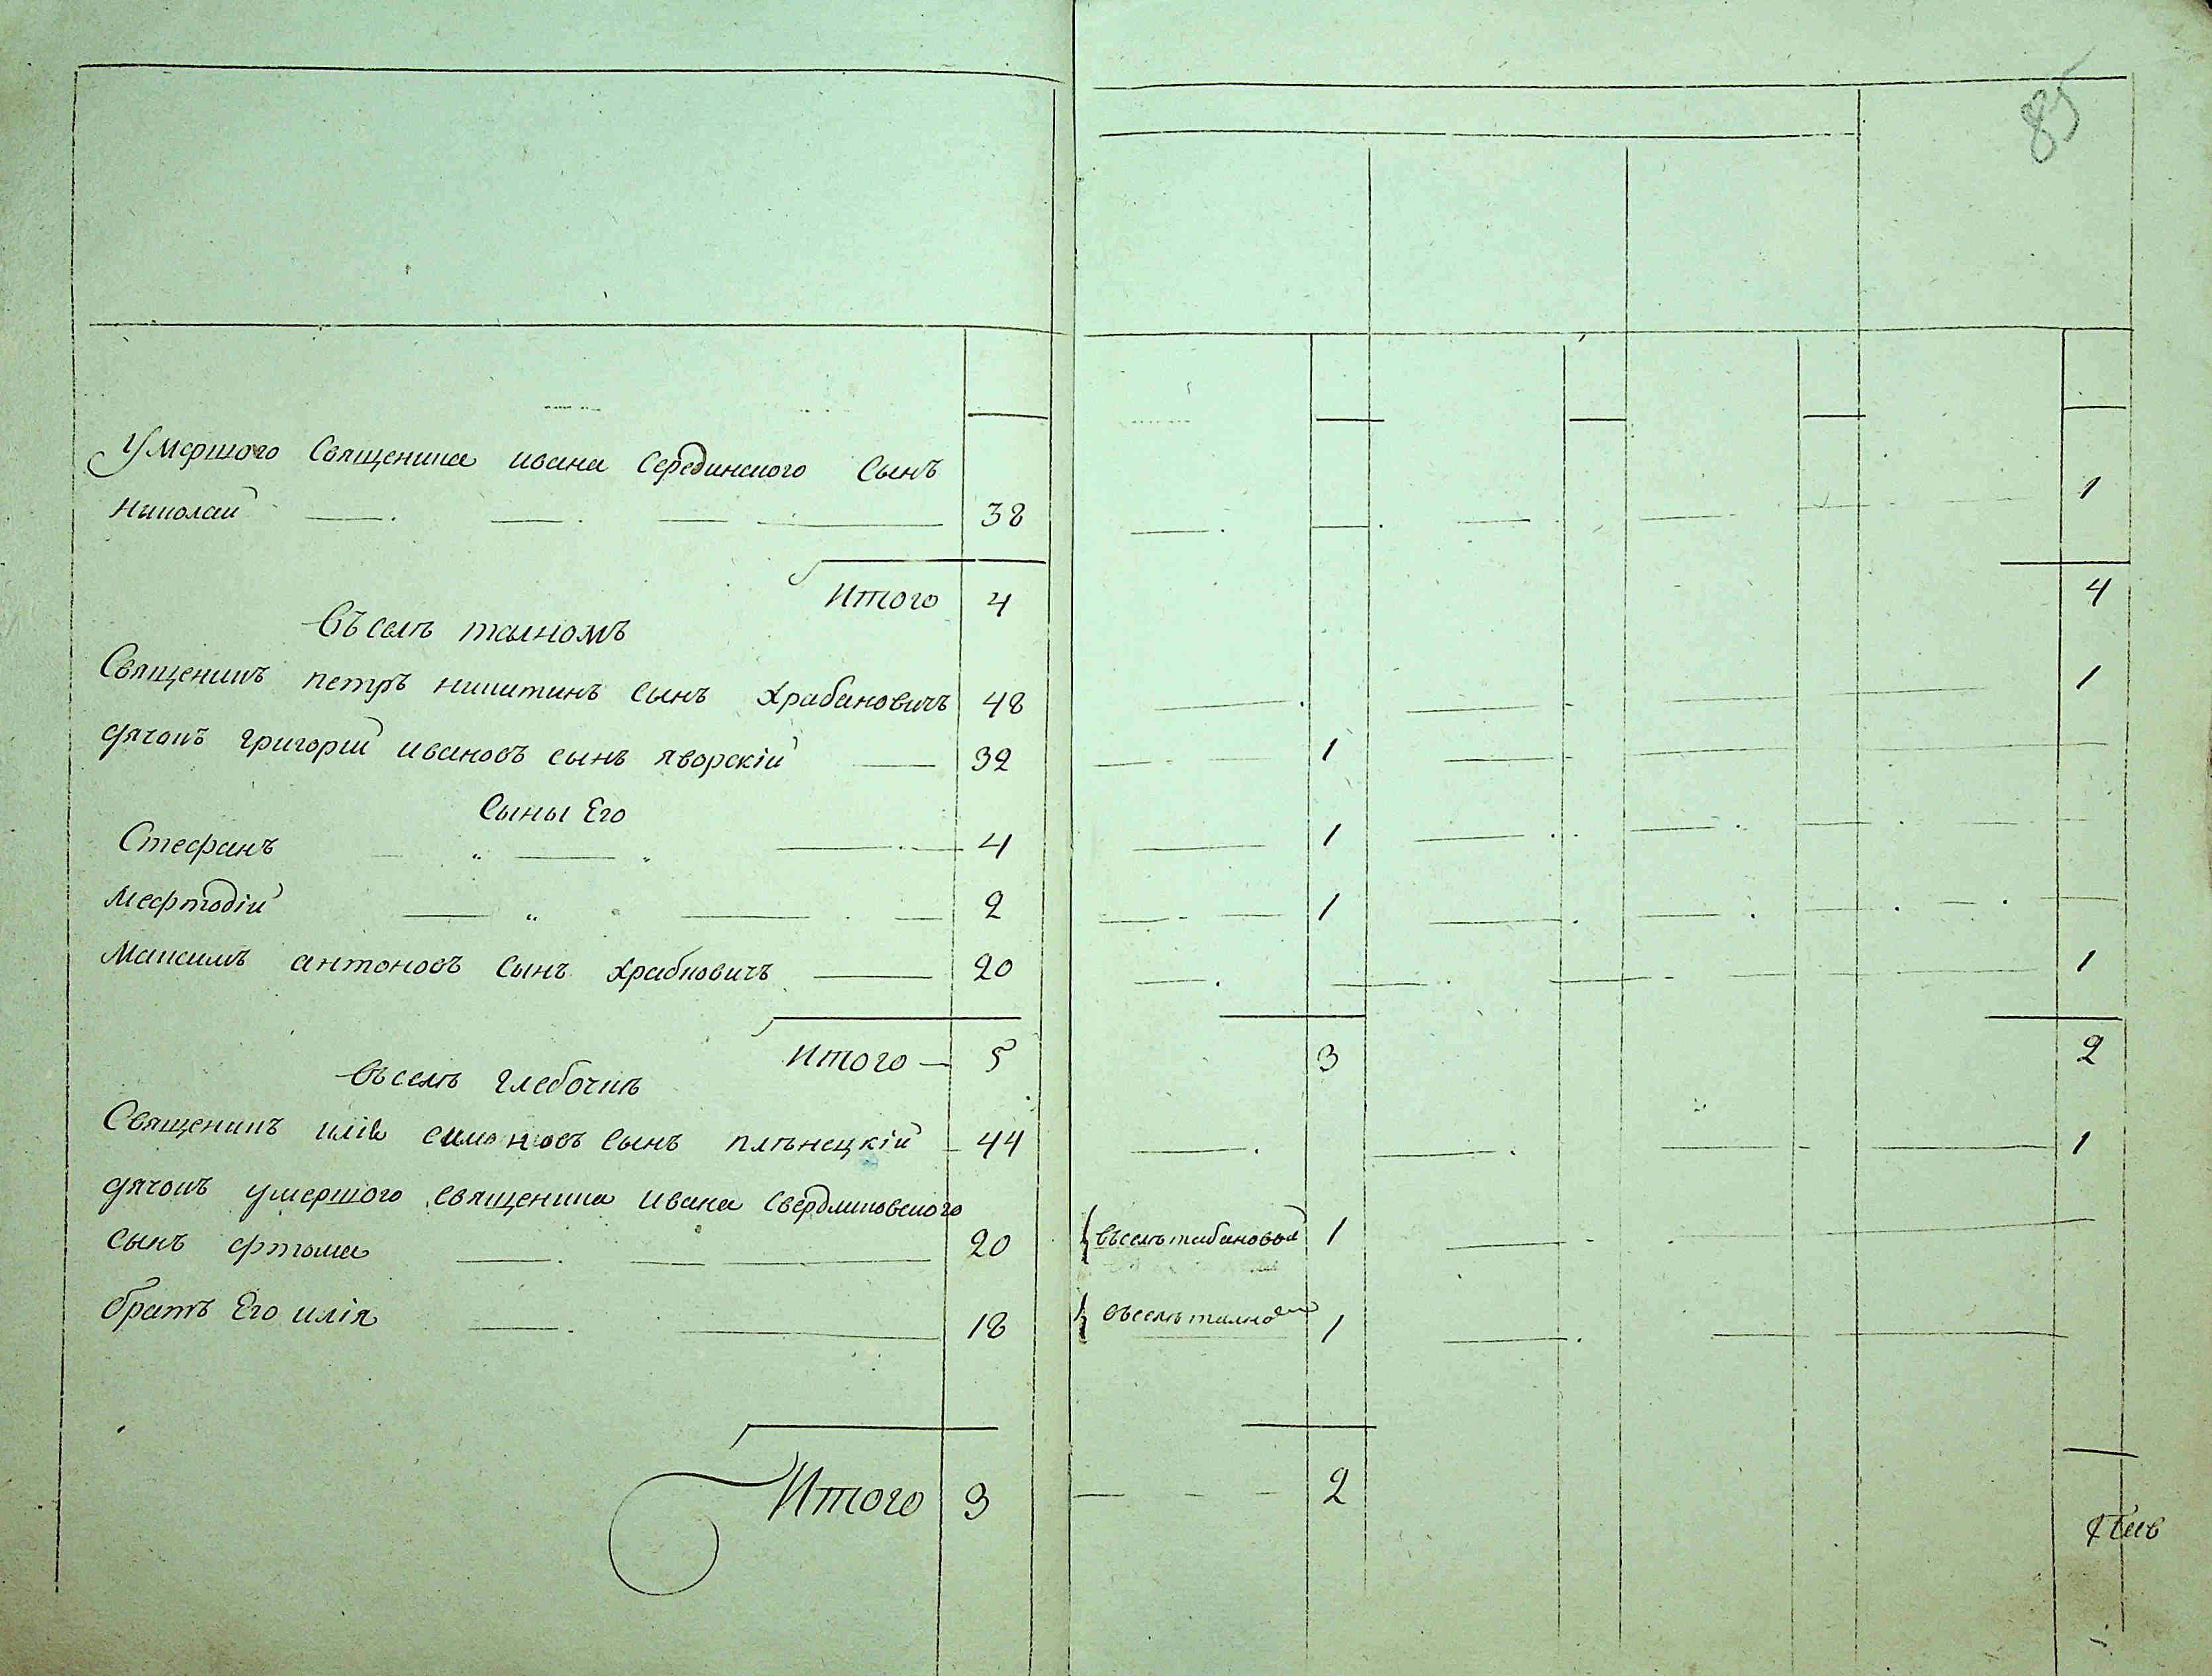 85
умершого священика ивана Серединского сынъ
николай 38 1
Итого 4 4
въ селѣ талномъ
Священикъ петръ никитинъ сынъ храбановичъ 48 1
дячокъ григорій ивановъ сынъ яворскій 32 1
сыны Его
Стефанъ 4 1
мефтодій 2 1
максимъ антоновъ сынъ храбновичъ 20 1
Итого 5 3 2
въ селѣ глебочкѣ
Священикъ илія симоновъ сынъ плѣнецкій 44 1
дячокъ умершого священика ивана свердликовского
сынъ фтома 20 въ селѣ табановой 1
братъ Его илія 18 въ селѣ талномъ 1
Итого 3 2